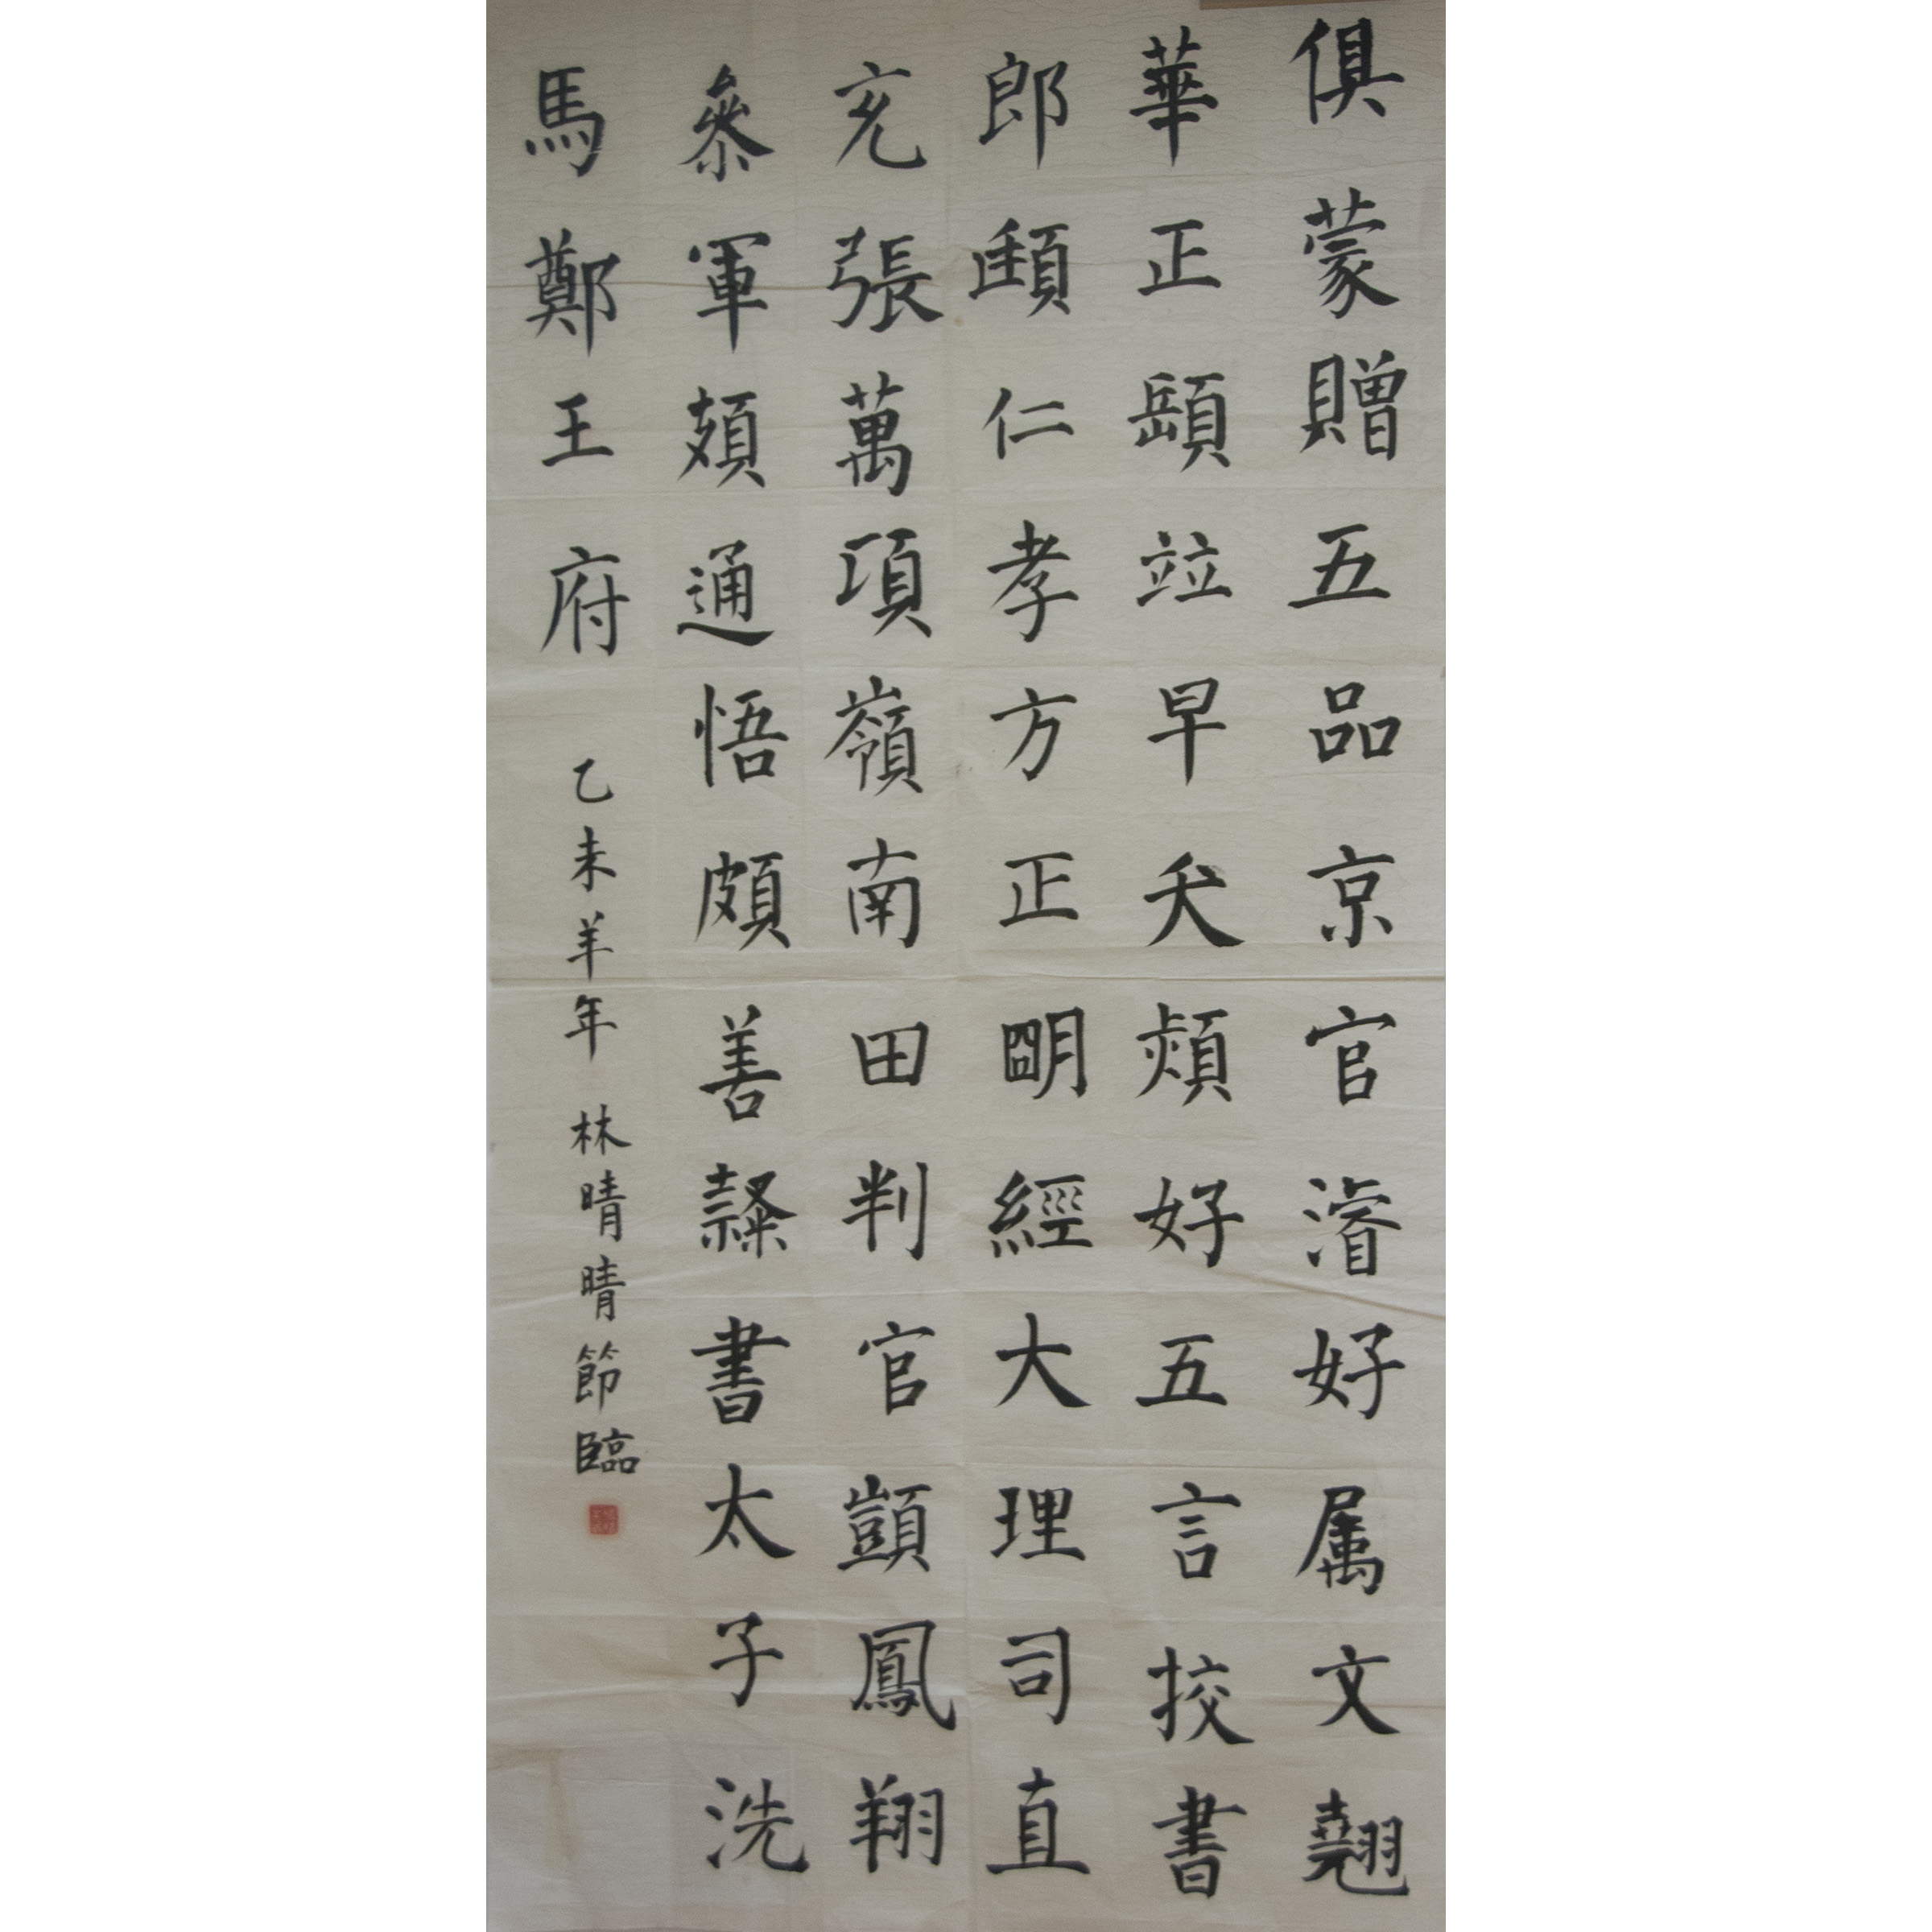 俱蒙贈五品京官濬好属文翹
華正頤竝早夭熲好五言挍書
郎頲仁孝方正明經大理司直
充張萬項嶺南田判官顗鳳翔
叅軍頍通悟頗善隸書太子洗
馬鄭王府
乙未羊年 林晴晴節臨